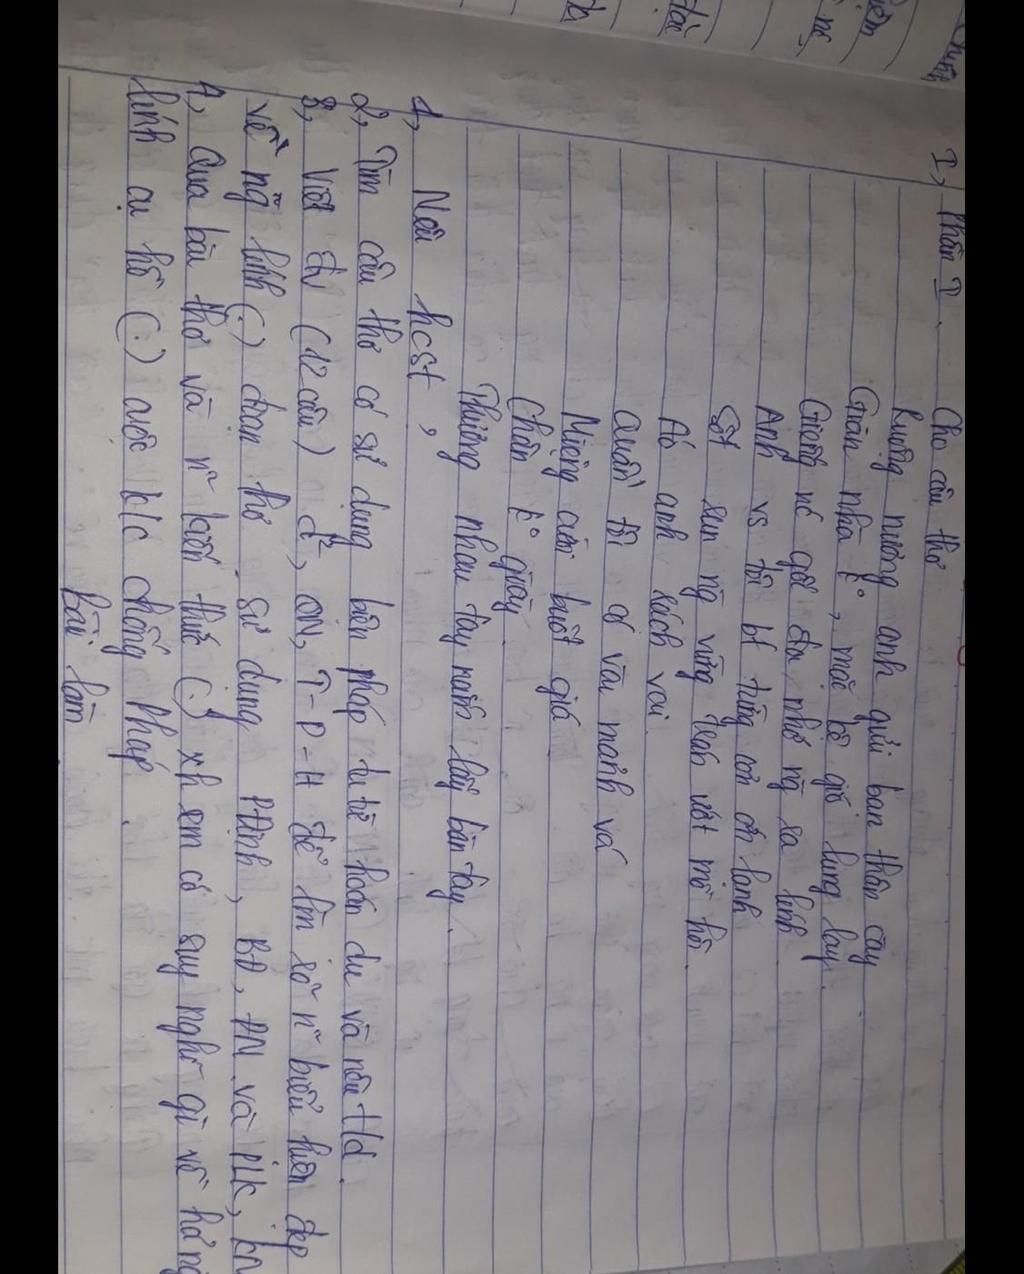 I, Phần I. Cho câu thơ
Ruộng nương anh gửi bạn thân cày
Gian nhà k°, mặc kệ gió lung lay.
Giếng nc gốc đa nhớ ng ra lính
Anh vs tôi bt từng cơn ớn lạnh
Sốt run ng vừng trán ướt mồ hôi.
Áo anh rách vai
Quần tôi có vài mảnh vá
Miệng cười buốt giá
Chân k° giày
Thương nhau tay nắm lấy bàn tay.
1, Nêu hcst,
2, Tìm câu thơ có sử dụng biện pháp tu từ hoán dụ và nêu t/d.
3, Viết đv (12 câu) , QN, T-P-H để làm sõ n~ biểu hiện đẹp
về ng lính (.) đoạn thơ sử dụng , BĐ, và PLK,
4, Qua bài thơ và n~ kiến thức (.) xh em có suy nghĩ gì về h/ả ng
lính cụ hồ (.) cuộc k/c chống Pháp.
Bài làm